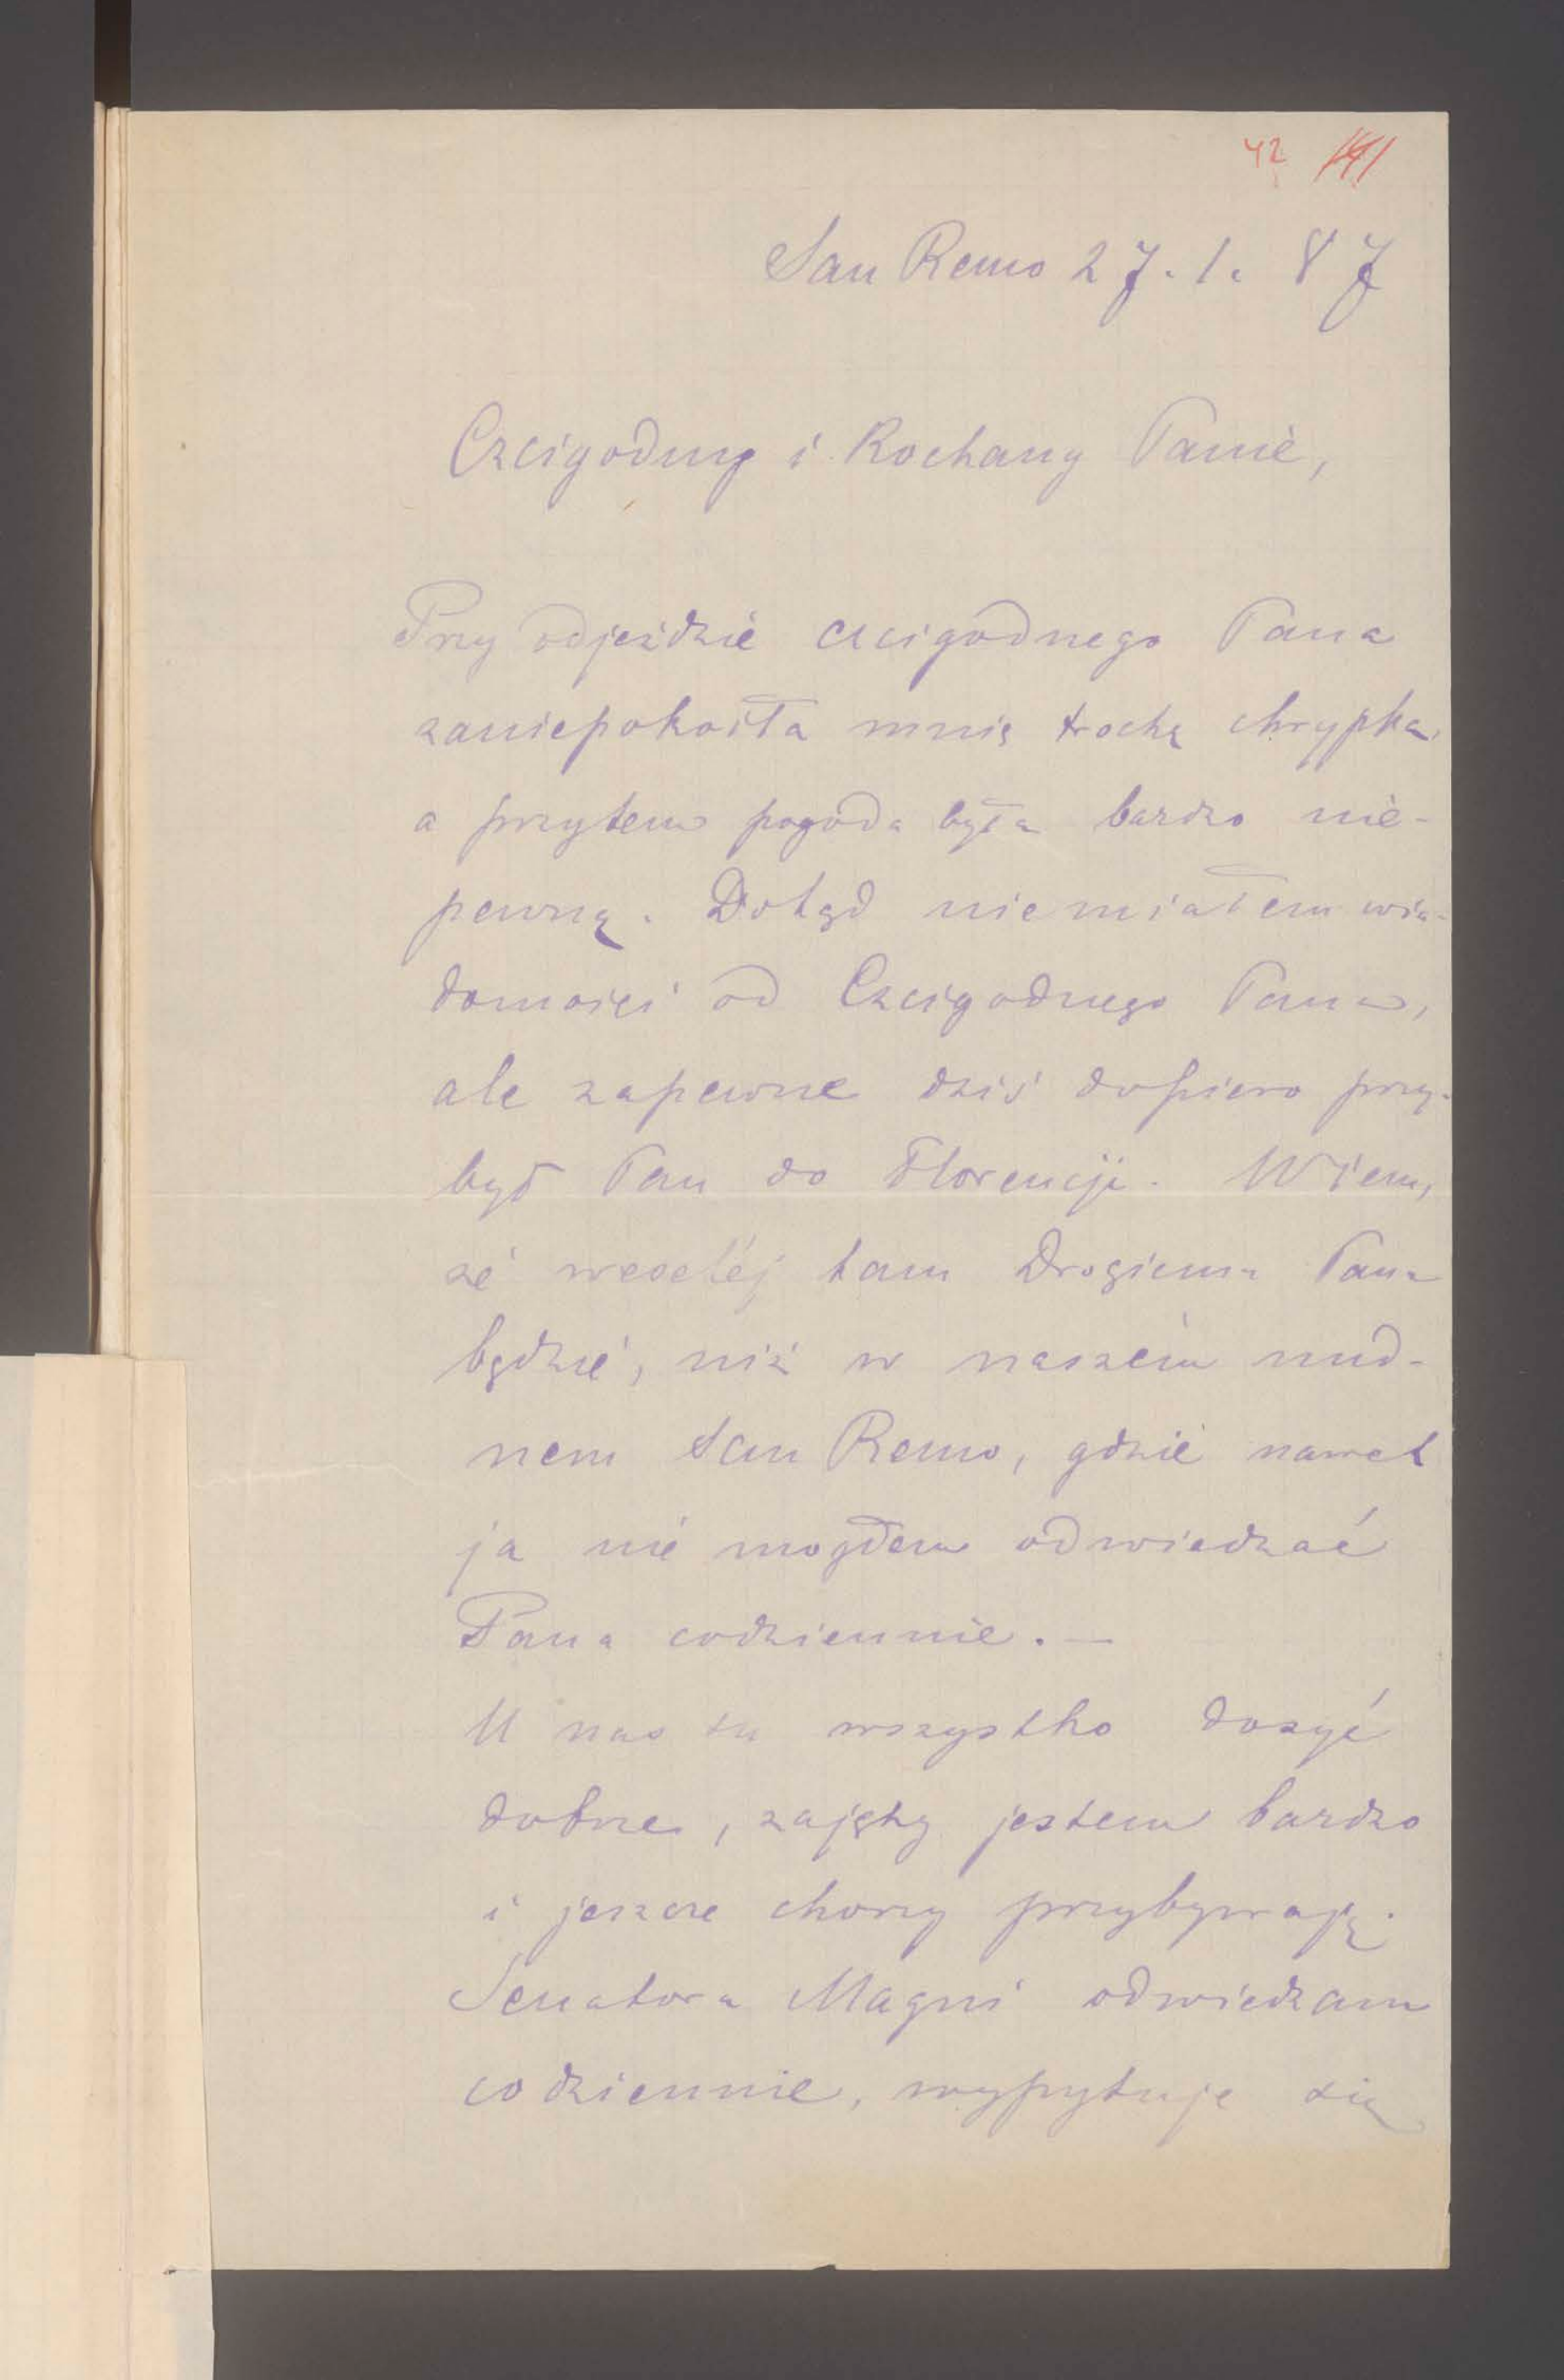 42 141
San Remo 27. 1. 87
Czcigodny i Kochany Panie,
Przy odjeździe czcigodnego Pana
zaniepokoiła mnie trochę chrypka,
a przytem pogoda była bardzo nie-
pewną. Dotąd nie miałem wia-
domości od Czcigodnego Pana,
ale zapewne dziś dopiero przy-
był Pan do Florencji. Wiem,
że weselej tam Drogiemu Panu
będzie, niż w naszém nud-
nem San Remo, gdzie nawet
ja nie mogłem odwiedzać
Pana codziennie. —
U nas tu wszystko dosyć
dobrze, zajęty jestem bardzo
i jeszcze chorzy przybywają.
Senatora Magni odwiedzam
codziennie, wypytuje się